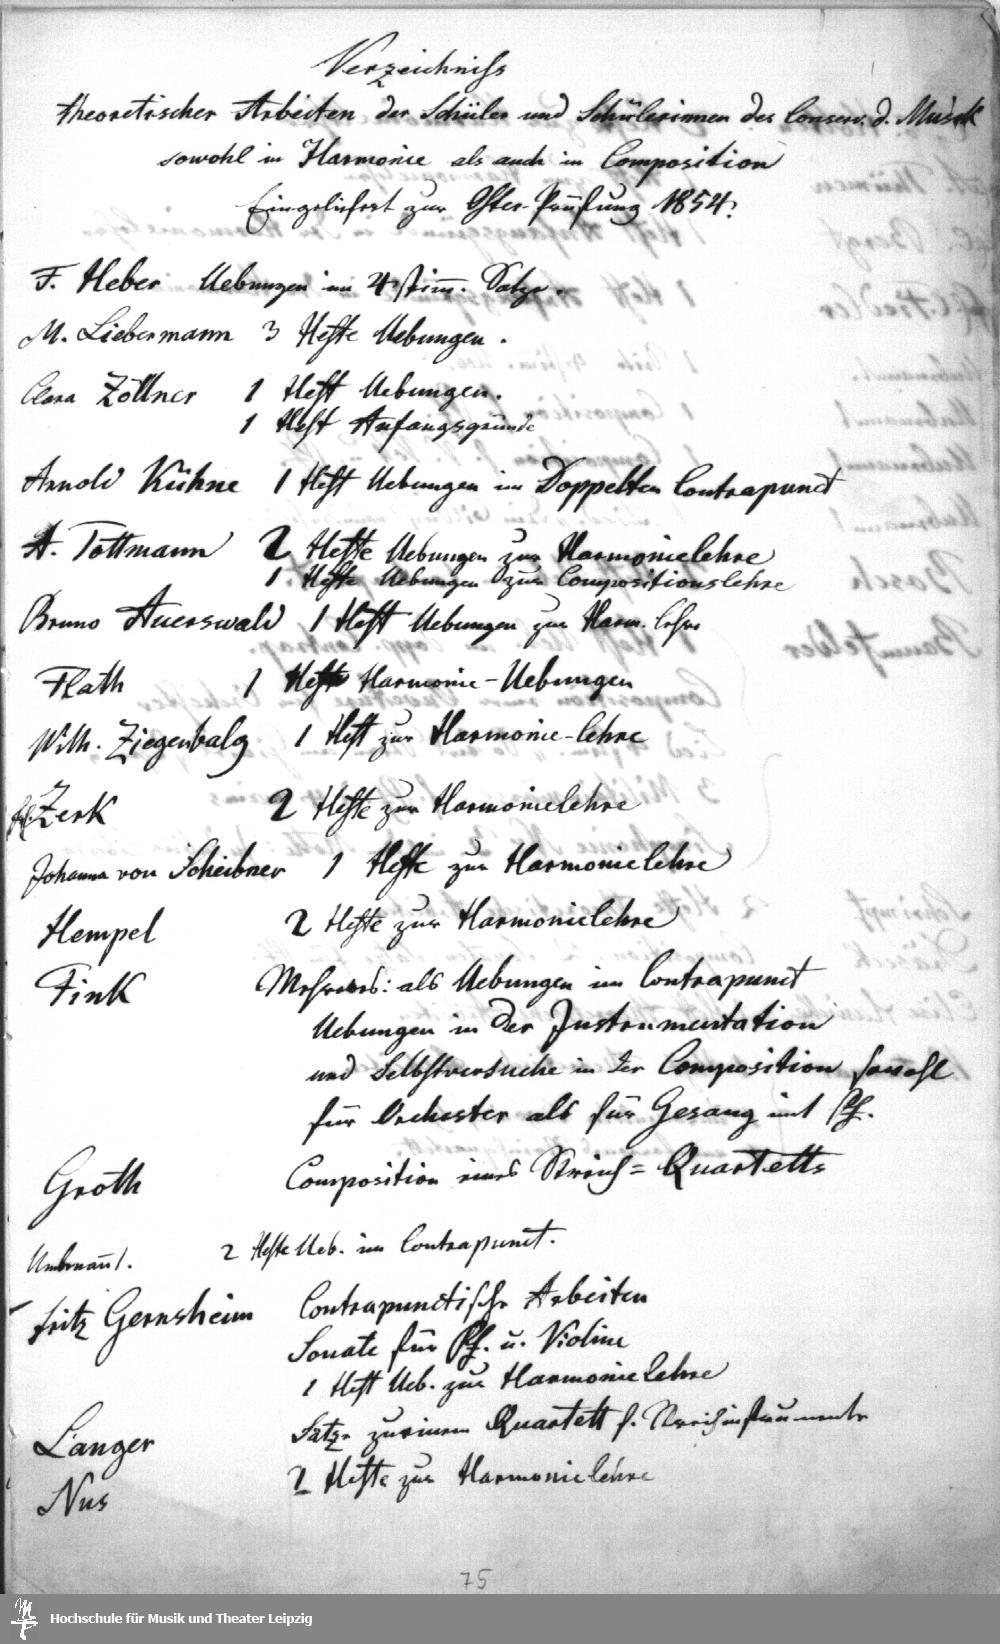 Verzeichniss
theoretischer Arbeiten der Schüler und Schülerinnen des Conserv. d. Musik
sowohl in Harmonie als auch in Composition
Eingeliefert zur Oster-Prüfung 1854.
F. Heber Uebungen im 4 stim̅. Satze.
M. Liebermann 3 Hefte Uebungen.
Clara Zöllner 1 Heft Uebungen.
1 Heft Anfangsgründe
Arnold Kühne 1 Heft Uebungen im Doppelten Contrapunct
A. Tottmann 2 Hefte Uebungen zur Harmonielehre
1 Hefte Uebungen zur Compositionslehre
Bruno Auerswald 1 Heft Uebungen zur Harm. lehre
Flath 1 Heft Harmonie-Uebungen
Wilh. Ziegenbalg 1 Heft zur Harmonie-lehre
Zerk 2 Hefte zur Harmonielehre
Johanna von Scheibner 1 Hefte zur Harmonielehre
Hempel 2 Hefte zur Harmonielehre
Fink Mehreres: als Uebungen im Contrapunct
Uebungen in der Instrumentation
und Selbstversuche in der Composition sowohl
für Orchester als für Gesang mit Pf.
Groth Composition eines Streich=Quartetts
2 Hefte Ueb. im Contrapunct.
Fritz Gernsheim Contrapunctische Arbeiten
Sonate für Pf. u. Violine
1 Heft Ueb. zur Harmonielehre
Langer Sätze zu einem Quartett f. Streichinstrumente
Nus 2 Hefte zur Harmonielehre
75
Hochschule für Musik und Theater Leipzig